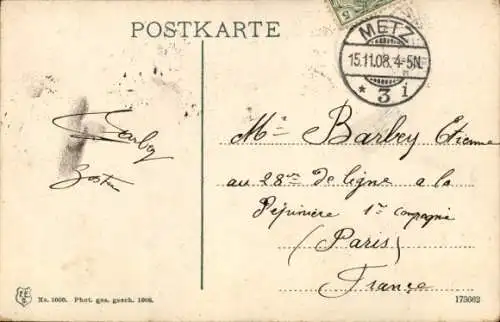 POSTKARTE
5
METZ
15.11.08.4-5N.
* 3 i
Mr Barbey Etienne
au 28me De ligne a la
Pépinière 1re Compagnie
(Paris)
France
No. 1600. Phot. ges. gesch. 1908.
173662